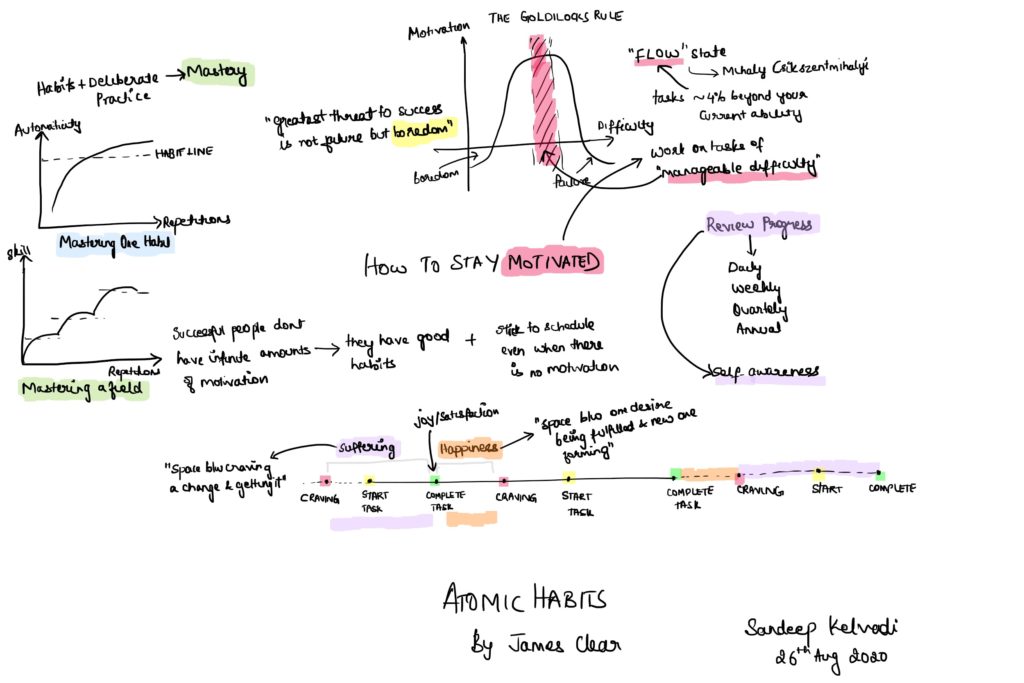 THE GOLDILOCKS RULE
Motivation
"FLOW" state
Mihaly Csikszentmihalyi
tasks ~4% beyond your
current ability
Habits + Deliberate
Practice
Mastery
"greatest threat to success
is not failure but boredom"
Difficulty
boredom
failure
work on tasks of
"manageable difficulty"
Automaticity
HABIT LINE
Repetitions
Mastering One Habit
HOW TO STAY MOTIVATED
Review Progress
Daily
Weekly
Quartely
Annual
self awareness
Skill
Repetitions
Mastering a field
Successful people dont
have infinite amounts
of motivation
they have good
habits
+
stick to schedule
even when there
is no motivation
joy/satisfaction
Suffering
Happiness
"space b/w one desire
being fulfilled & new one
forming"
"Space b/w craving
a change & getting it"
CRAVING
START
TASK
COMPLETE
TASK
CRAVING
START
TASK
COMPLETE
TASK
CRAVING
START
COMPLETE
ATOMIC HABITS
By James Clear
Sandeep Kelvadi
26th Aug 2020